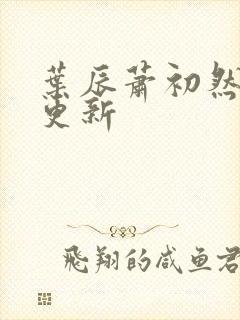 葉辰蕭初然
更新
飛翔的咸魚君